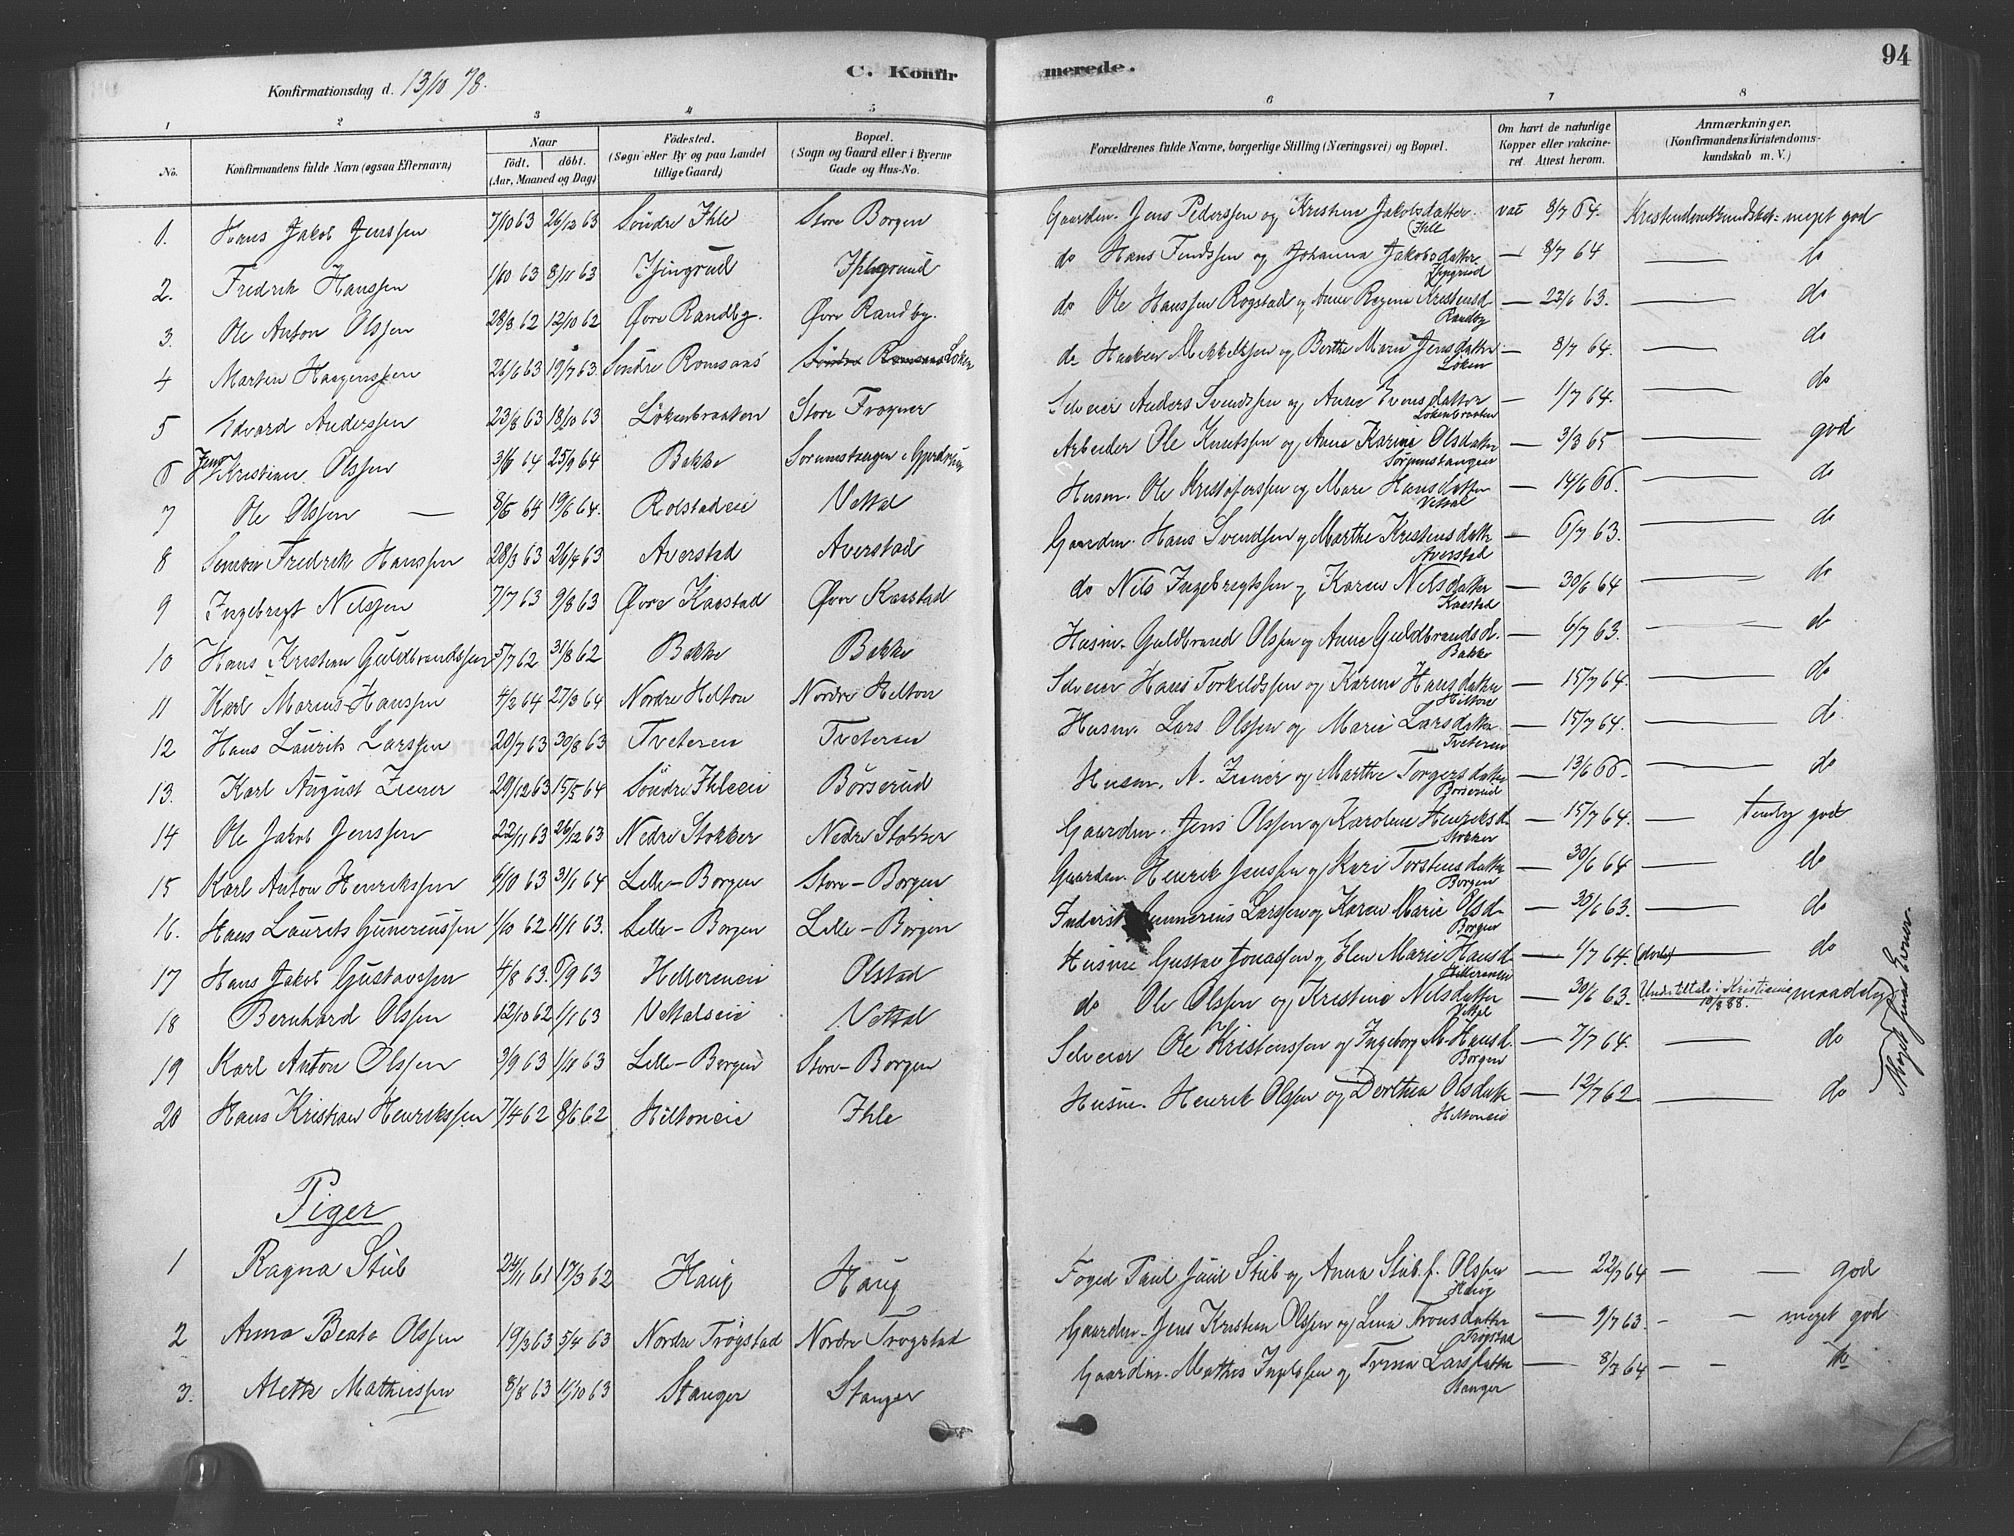 C. Konfir merede. 94
Konfirmationsdag d. 13/10 78.
1 2 3 4 5 6 7 8
No. Konfirmandens fulde Navn (ogsaa Efternavn) Naar født. døbt. (Aar, Maaned og Dag) Fødested. (Sogn eller By og paa Landet tillige Gaard) Bopæl. (Sogn og Gaard eller i Byerne Gade og Hus-No. Forældrenes fulde Navne, borgerlige Stilling (Næringsvei) og Bopæl. Om havt de naturlige Kopper eller vakcineret. Attest herom. Anmærkninger. (Konfirmandens Kristendomskundskab m. V.)
1. Hans Jakob Jenssen 7/10 63 26/12 63 Söndre Ihle Store Borgen Gaardm. Jens Pederssen og Kristine Jakobsdatter Ihle vac 8/7 64. Kristendomskundskab: meget god
2. Fredrik Hanssen 1/10 63 8/11 63 do Hans Findssen og Johanna Jakobsdatter — 8/7 64 — do
3. Ole Anton Olssen 28/8 62 12/10 62 Øvre Randby. Øvre Randby. do Ole Hanssen Rogstad og Anne Regine Kristensd. Randby — 22/6 63. — do
4 Marten Haagenssen 26/6 63 19/7 63. Söndre Romsaas Söndre Romsaas Løken do Haaken Mikkelssen og Berthe Marie Jensdatter Løken — 8/7 64. — do
5 Edvard Anderssen 23/8 63 18/10 63 Lökenbraaten Store Frogner Selveier Anders Svendssen og Anne Evensdatter Løkenbraaten — 1/7 64. — do
6 Jens Kristian Olssen 3/6 64 25/9 64 Bakke Sørumstangen i Gjerdrum Arbeider Ole Knutssen og Anne Karine Olsdatter Sørumstangen — 3/3 65 — god
7 Ole Olssen — 8/5 64 19/6 64. Rolstadeie Vettal Husm. Ole Kristoferssen og Mari Hansdatter Vettal — 14/6 66. — do
8 Fredrik Hanssen 28/3 63 26/4 63 Averstad Averstad Gaardm. Hans Svendsen og Marthe Kristensdatter Averstad — 6/7 63. — do
9 Ingebregt Nilssen 7/7 63 9/8 63 Øvre Kaastad Øvre Kaastad do Nils Ingebregtssen og Karen Nilsdatter Kaastad — 30/6 64 — do
10 Hans Kristian Guldbrandssen 5/7 62 31/8 62 Bakke Bakke Husm. Guldbrand Olssen og Anne Guldbrandsd. Bakke — 6/7 63. — do
11 Karl Marius Hanssen 4/2 64 27/3 64 Nordre Hilton Nordre Hilton Selveier Hans Torkildssen og Karen Hansdatter Hilton — 15/7 64. — do
12 Hans Laurits Larssen 20/7 63 30/8 63 Tveteren Tveteren Husm. Lars Olssen og Marie Larsdatter Tveteren — 15/7 64. — do
13. Karl August Ziener 29/12 63 15/5 64 Söndre Ihleeie Børserud Husm. N. Ziener og Marthe Torgersdatter Børserud — 13/6 66. — do
14 Ole Jakob Jenssen 22/11 63 26/12 63 Nedre Stokker Nedre Stokker Gaardm. Jens Olssen og Karoline Henriksd. Stokker — 15/7 64. — temly god
15 Karl Anton Henrikssen 6/10 63 31/1 64 Lille-Borgen Store-Borgen Gaardm. Henrik Jenssen og Kari Torstensdatter Borgen — 30/6 64 — do
16. Hans Laurits Gunerussen 1/10 62 11/1 63. Lille-Borgen Lille-Borgen Inderst Gunnerius Larssen og Karen Marie Olsd. Borgen — 30/6 63. — do
17 Hans Jakob Gustavssen 4/8 63. 6/9 63 Olstad Husm. Gustav Jonassen og Elen Marie Hansd. — 1/7 64. — do
18 Bernhard Olssen 12/10 62 1/1 63 Vettaleie Vettal do Ole Olssen og Kristine Nilsdatter Vettal — 30/6 63. Kristiania 10/8 88. maadelig
19 Karl Anton Olssen 3/9 63 1/11 63 Lille-Borgen Store-Borgen Selveier Ole Kristenssen og Ingeborg M. Hansd. Borgen — 7/7 64. — do
20 Hans Kristian Henrikssen 7/4 62 8/6 62 Hiltoneie Ihle Husm. Henrik Olssen og Dorthea Olsdatter Hiltoneie — 12/7 62 — do
Piger
1 Ragna Stub 24/11 61 17/3 62 Haug Haug Foged Paul Juul Stub og Anna Stub f. Olssen Haug — 22/7 64 — god
2 Anna Beata Olssen 19/3 63 5/4 63 Nordre Trögstad Nordre Trogstad Gaardm. Jens Kristian Olssen og Lina Tronsdatter Trogstad — 9/7 63. — meget god
3. Alette Mathiessen 8/8 63 11/10 63 Stanger Stanger Gaardm. Mathis Ingelssen og Larsdatter Stanger — 8/7 64 — do